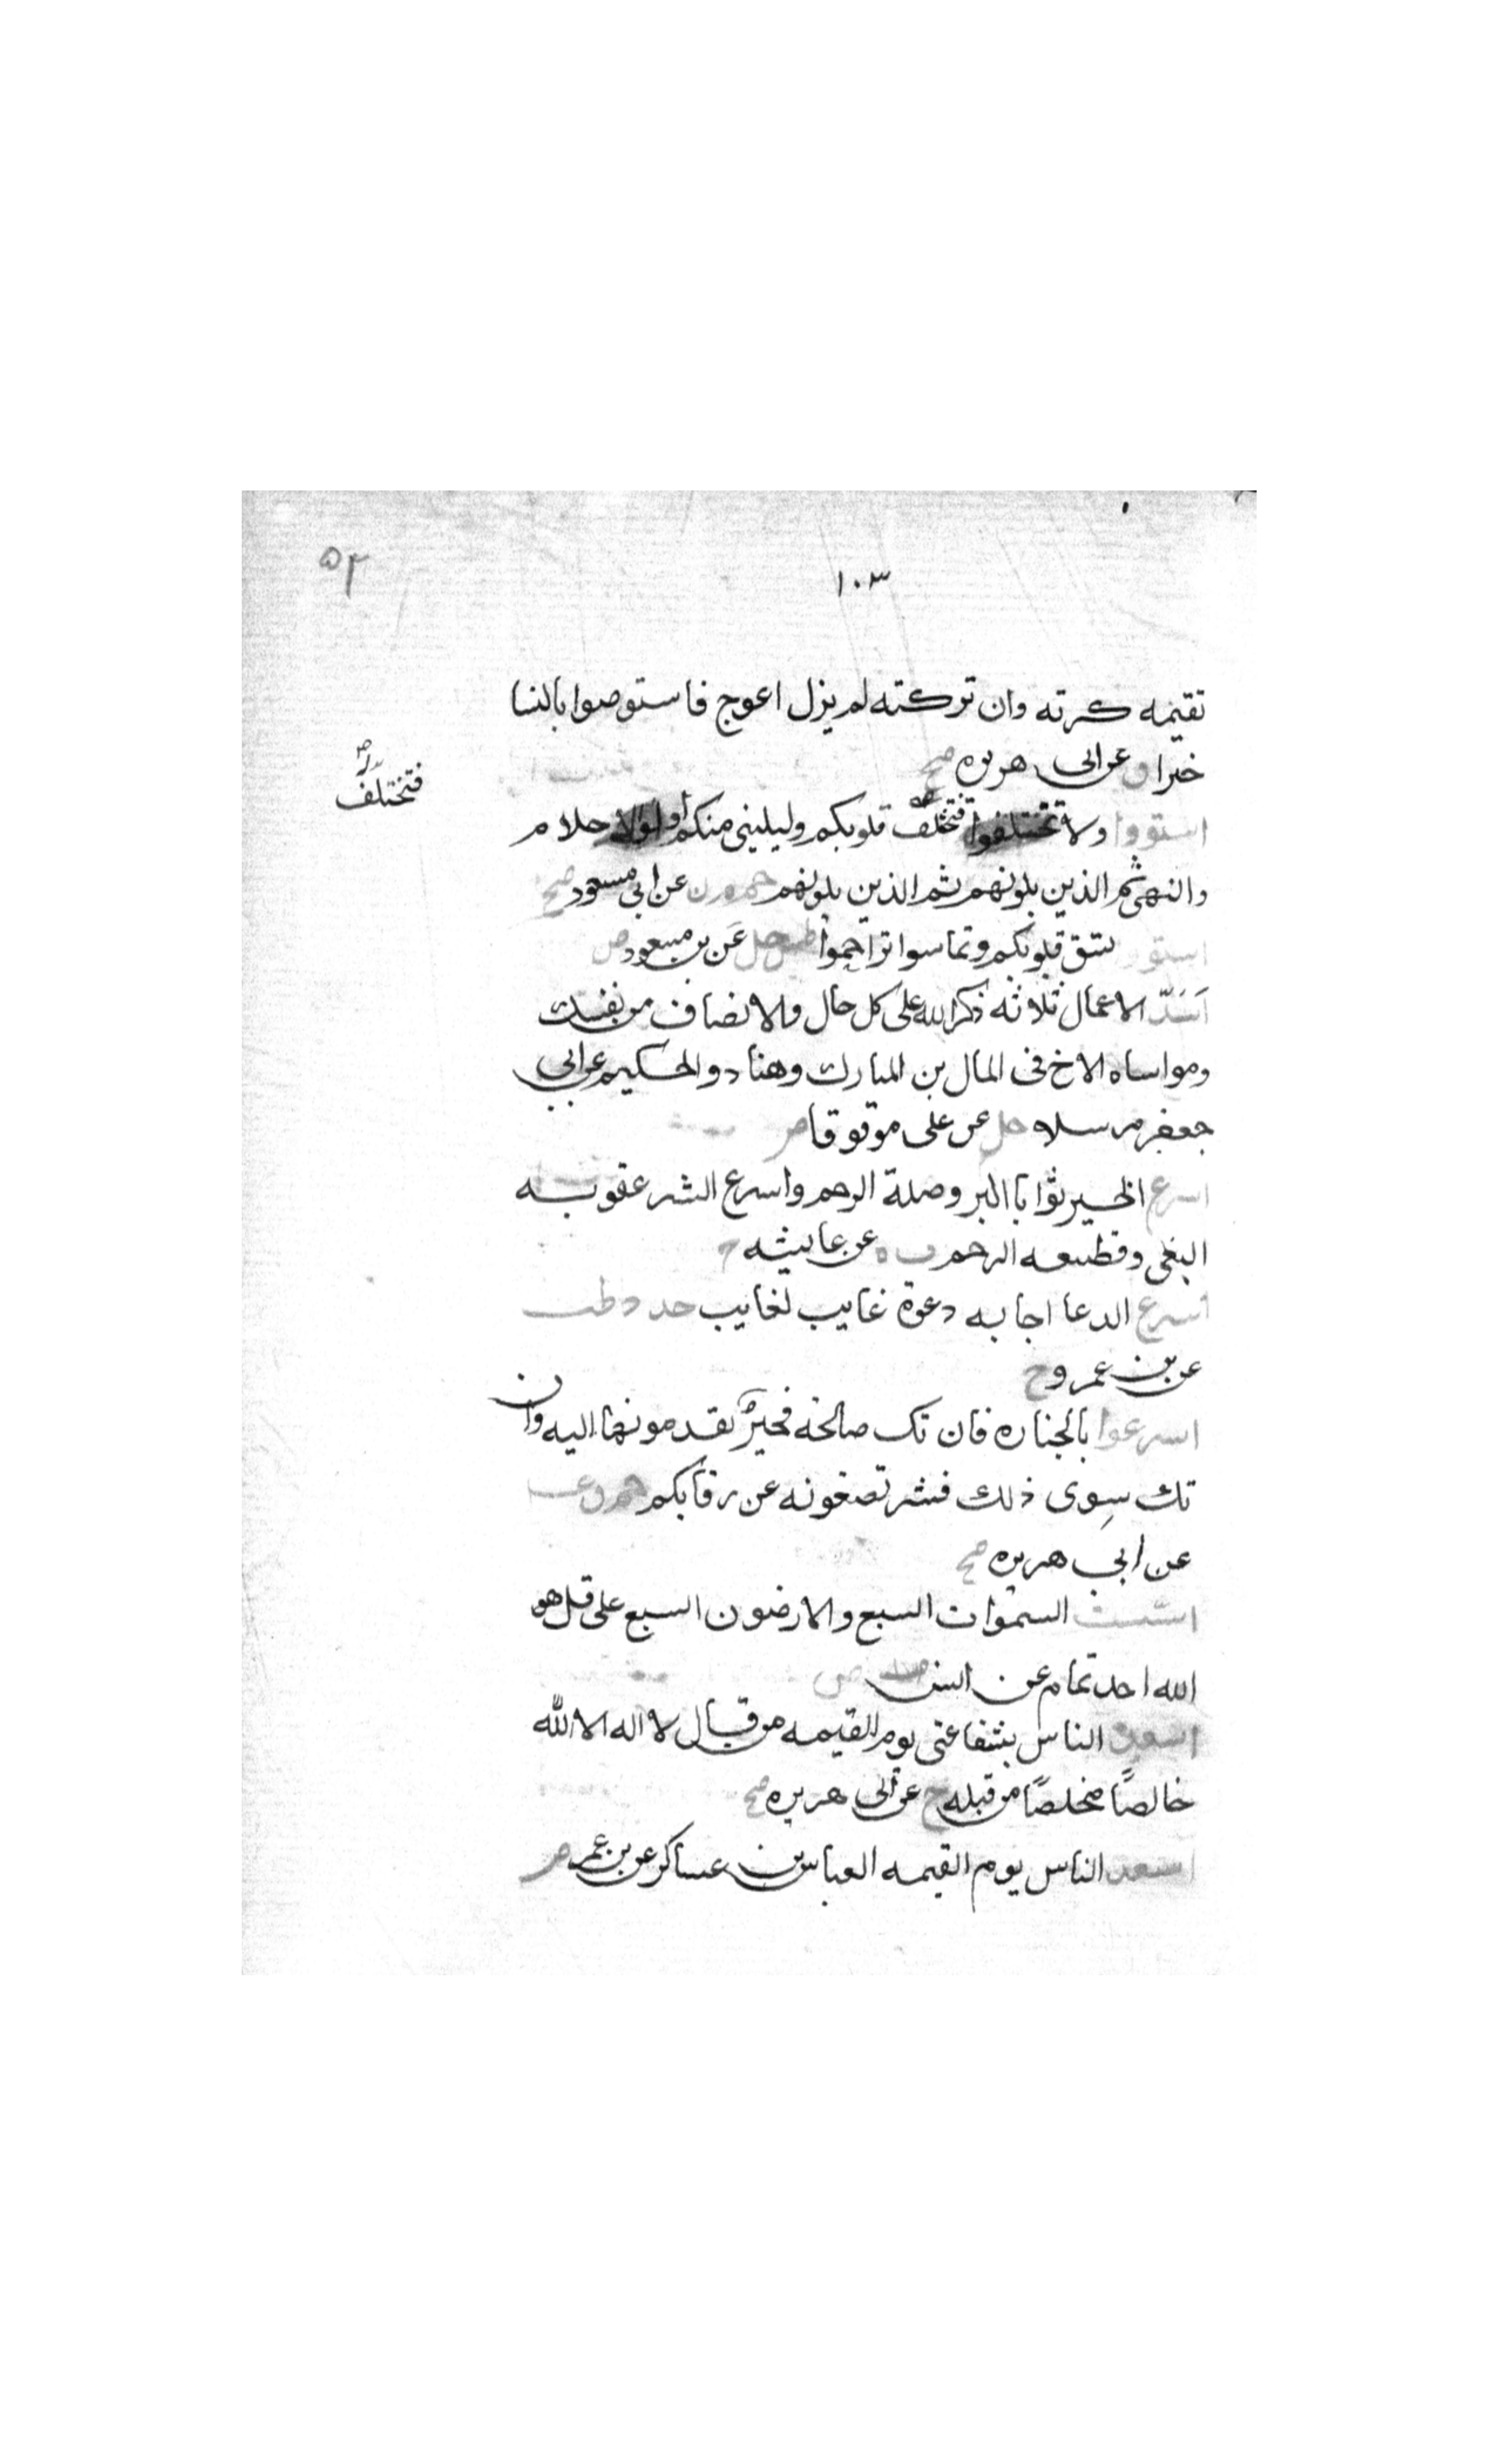 ٥٢
١٠٣
تقيمه كسرته وان تركته لم يزل اعوج فاستوصوا بالنسا
خيرا ق عن ابى هريره صح
فتختلف
استووا ولا تختلفوا فتختلف قلوبكم وليلينى منكم اولوا الاحلام
والنهى ثم الذين يلونهم ثم الذين يلونهم حم م ن عن ابى مسعود صح
استووا تستوى قلوبكم وتماسوا تراحموا طس حل عن بن مسعود ض
اسد الاعمال ثلاثه ذكر الله على كل حال والانصاف من نفسك
ومواساه الاخ فى المال بن المبارك وهناد والحكيم عن ابى
جعفر مرسلا حل عن على موقوقا ض
اسرع الخير ثوابا البر وصلة الرحم واسرع الشر عقوبه
البغى وقطيعه الرحم ت ه عن عايشه ح
اسرع الدعا اجابه دعوة غايب لغايب خد د طب
عن بن عمرو ح
اسرعوا بالجنازه فان تك صالحه فخير تقدمونها اليه وان
تك سوى ذلك فشر تضعونه عن رقابكم حم ق ع
عن ابي هريره صح
اسست السموات السبع والارضون السبع على قل هو
الله احد تمام عن انس ض
اسعد الناس بشفاعتى يوم القيمه من قال لا اله الا الله
خالصًا مخلصًا من قبله خ عن ابى هريره صح
اسعد الناس يوم القيمه العباس بن عساكر عن بن عمر ض